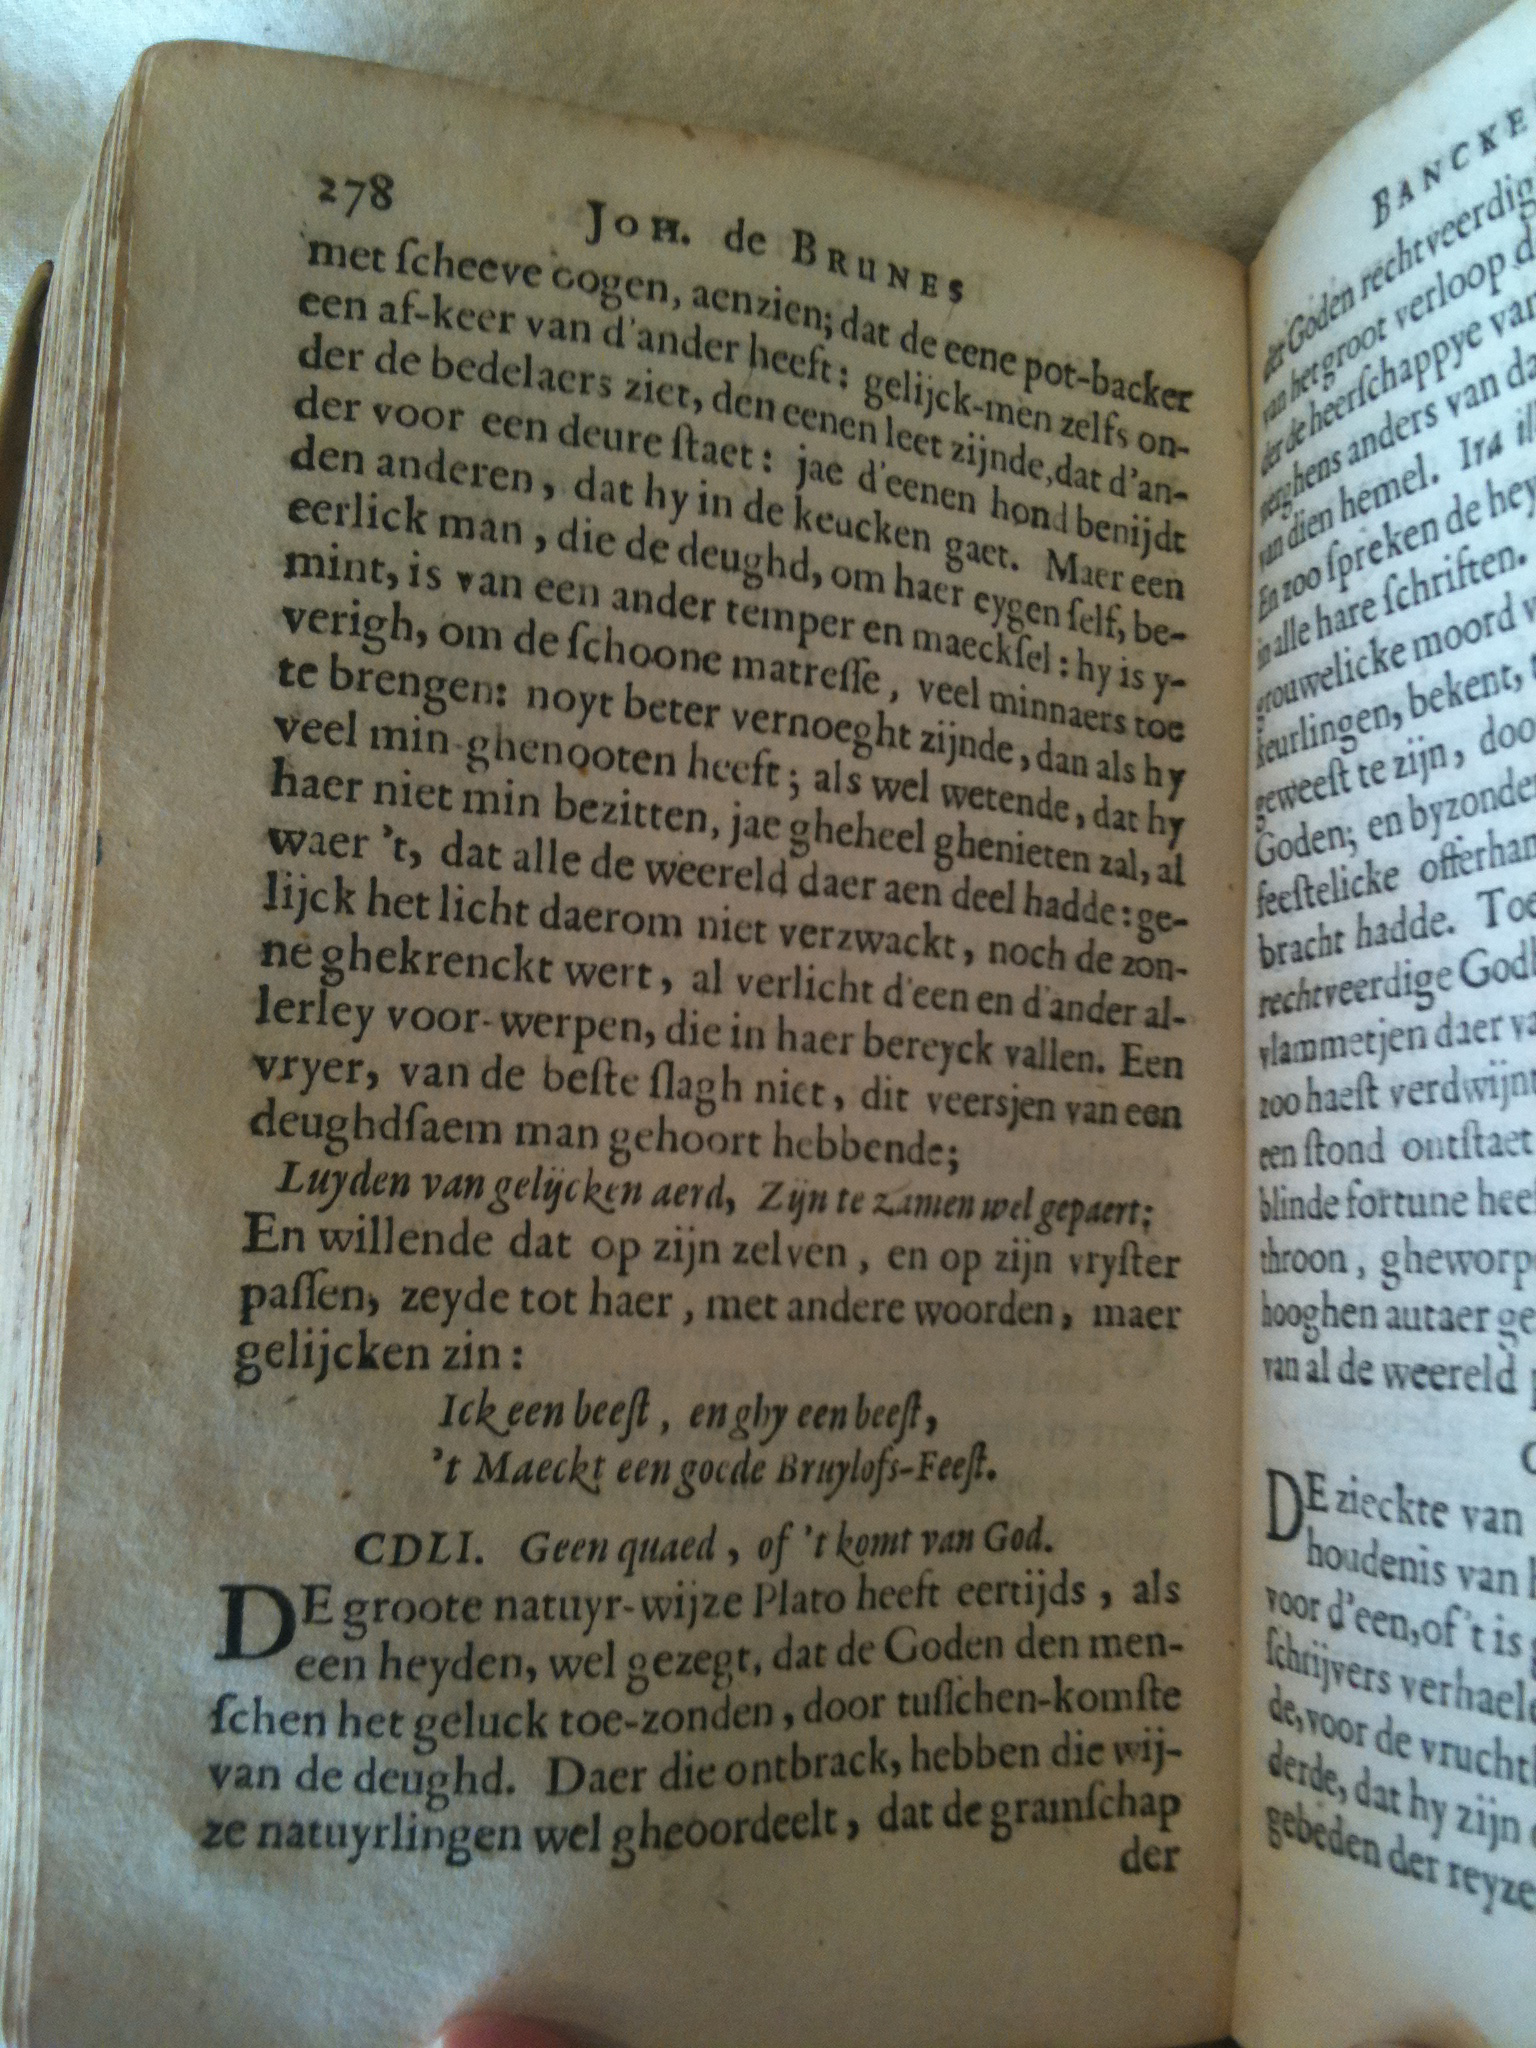 278
JOH. de BRUNES
met ſcheeve oogen, aenzien; dat de eene pot-backer
een af-keer van d'ander heeft: gelijck-men zelfs on-
der de bedelaers ziet, den eenen leet zijnde, dat d'an-
der voor een deure ſtaet: jae d'eenen hond benijdt
den anderen, dat hy in de keucken gaet. Maer een
eerlick man, die de deughd, om haer eygen ſelf, be-
mint, is van een ander temper en maeckſel: hy is y-
verigh, om de ſchoone matreſſe, veel minnaers toe
te brengen: noyt beter vernoeght zijnde, dan als hy
veel min-ghenooten heeft; als wel wetende, dat hy
haer niet min bezitten, jae gheheel ghenieten zal, al
waer 't, dat alle de weereld daer aen deel hadde: ge-
lijck het licht daerom niet verzwackt, noch de zon-
ne ghekrenckt wert, al verlicht d'een en d'ander al-
lerley voor-werpen, die in haer bereyck vallen. Een
vryer, van de beſte ſlagh niet, dit veersjen van een
deughdſaem man gehoort hebbende;
Luyden van gelijcken aerd, Zijn te zamen wel gepaert;
En willende dat op zijn zelven, en op zijn vryſter
paſſen, zeyde tot haer, met andere woorden, maer
gelijcken zin:
Ick een beeſt, en ghy een beeſt,
't Maeckt een goede Bruylofs-Feeſt.
CDLI. Geen quaed, of 't komt van God.
DE groote natuyr-wijze Plato heeft eertijds, als
een heyden, wel gezegt, dat de Goden den men-
ſchen het geluck toe-zonden, door tuſſchen-komſte
van de deughd. Daer die ontbrack, hebben die wij-
ze natuyrlingen wel gheoordeelt, dat de gramſchap
der
BANCKE
der Goden rechtveerdig
van het groot verloop
der de heerſchappye van
nerghens anders van
van dien hemel. Ira
En zoo ſpreken de
in alle hare ſchriften.
grouwelicke moord
keurlingen, bekent,
geweeſt te zijn, doo
Goden; en byzonde
feeſtelicke offerhan
bracht hadde. Toe
rechtveerdige God
vlammetjen daer
zoo haeſt verdwijn
een ſtond ontſtaet
blinde fortune hee
throon, gheworp
hooghen autaer ge
van al de weereld
DE zieckte van
houdenis van
voor d'een, of 't is
ſchrijvers verhael
de, voor de vrucht
derde, dat hy zijn
gebeden der reyze